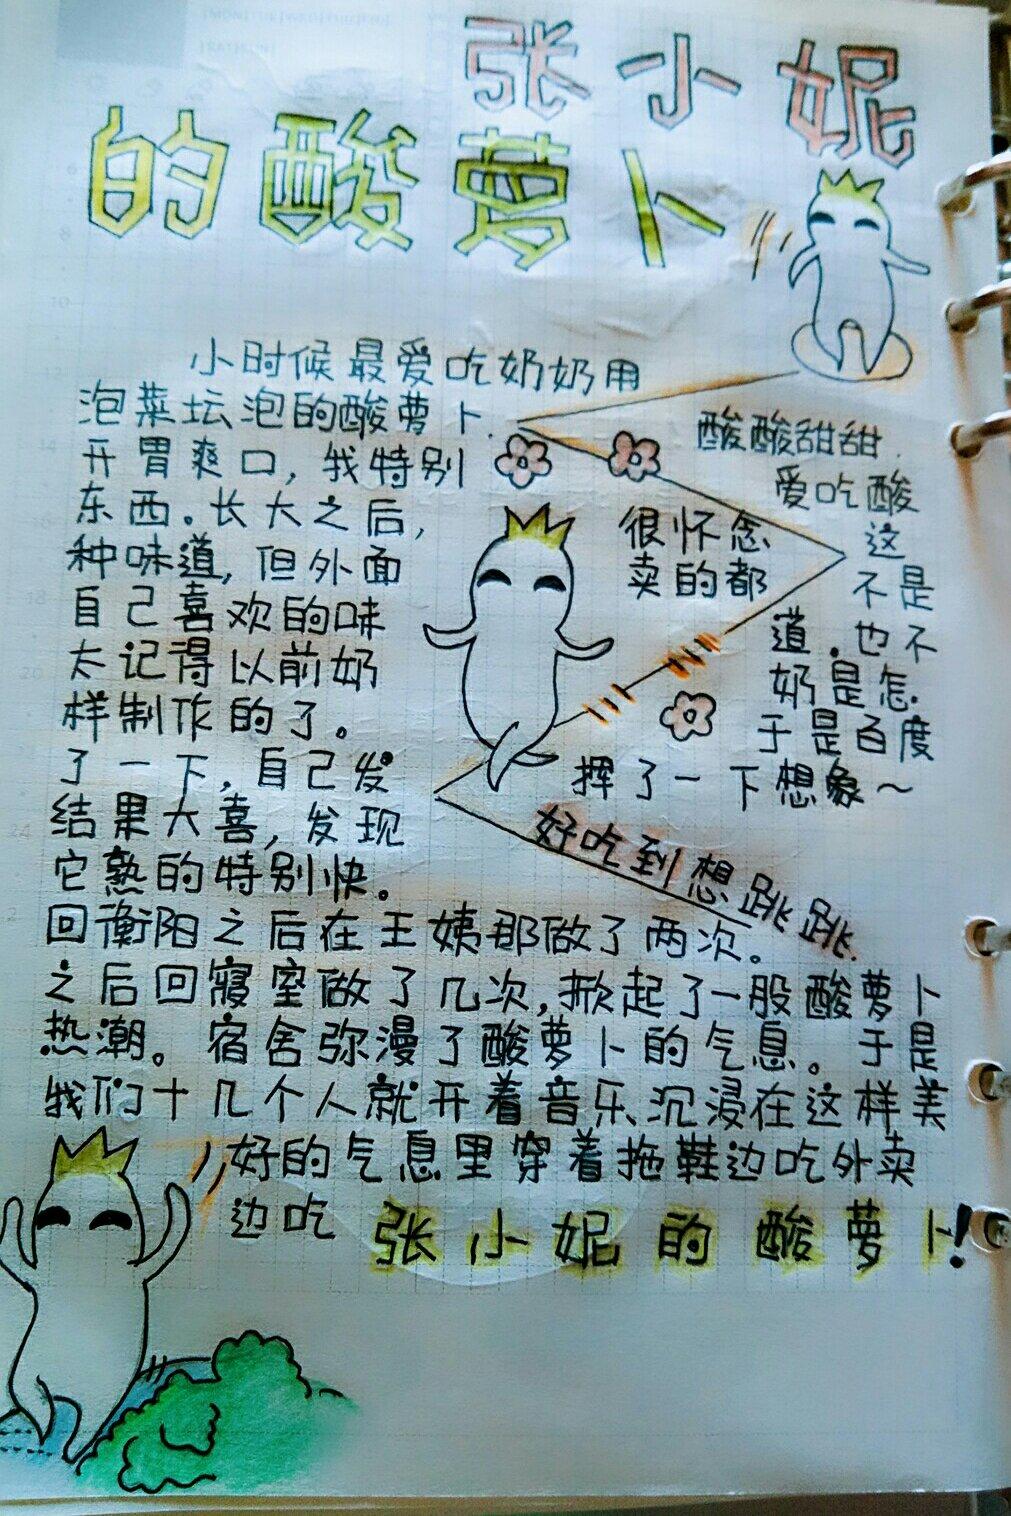 张小妮
的酸萝卜
小时候最爱吃奶奶用
泡菜坛泡的酸萝卜. 酸酸甜甜.
开胃爽口,我特别 爱吃酸
东西。长大之后, 很怀念 这
种味道,但外面 卖的都 不是
自己喜欢的味 道.也不
太记得以前奶 奶是怎
样制作的了。 于是百度
了一下,自己发 挥了一下想象~
结果大喜,发现
它熟的特别快。
好吃到想跳跳.
回衡阳之后在王姨那做了两次。
之后回寝室做了几次,掀起了一股酸萝卜
热潮。宿舍弥漫了酸萝卜的气息。于是
我们十几个人就开着音乐、沉浸在这样美
好的气息里穿着拖鞋边吃外卖
边吃 张小妮的酸萝卜!